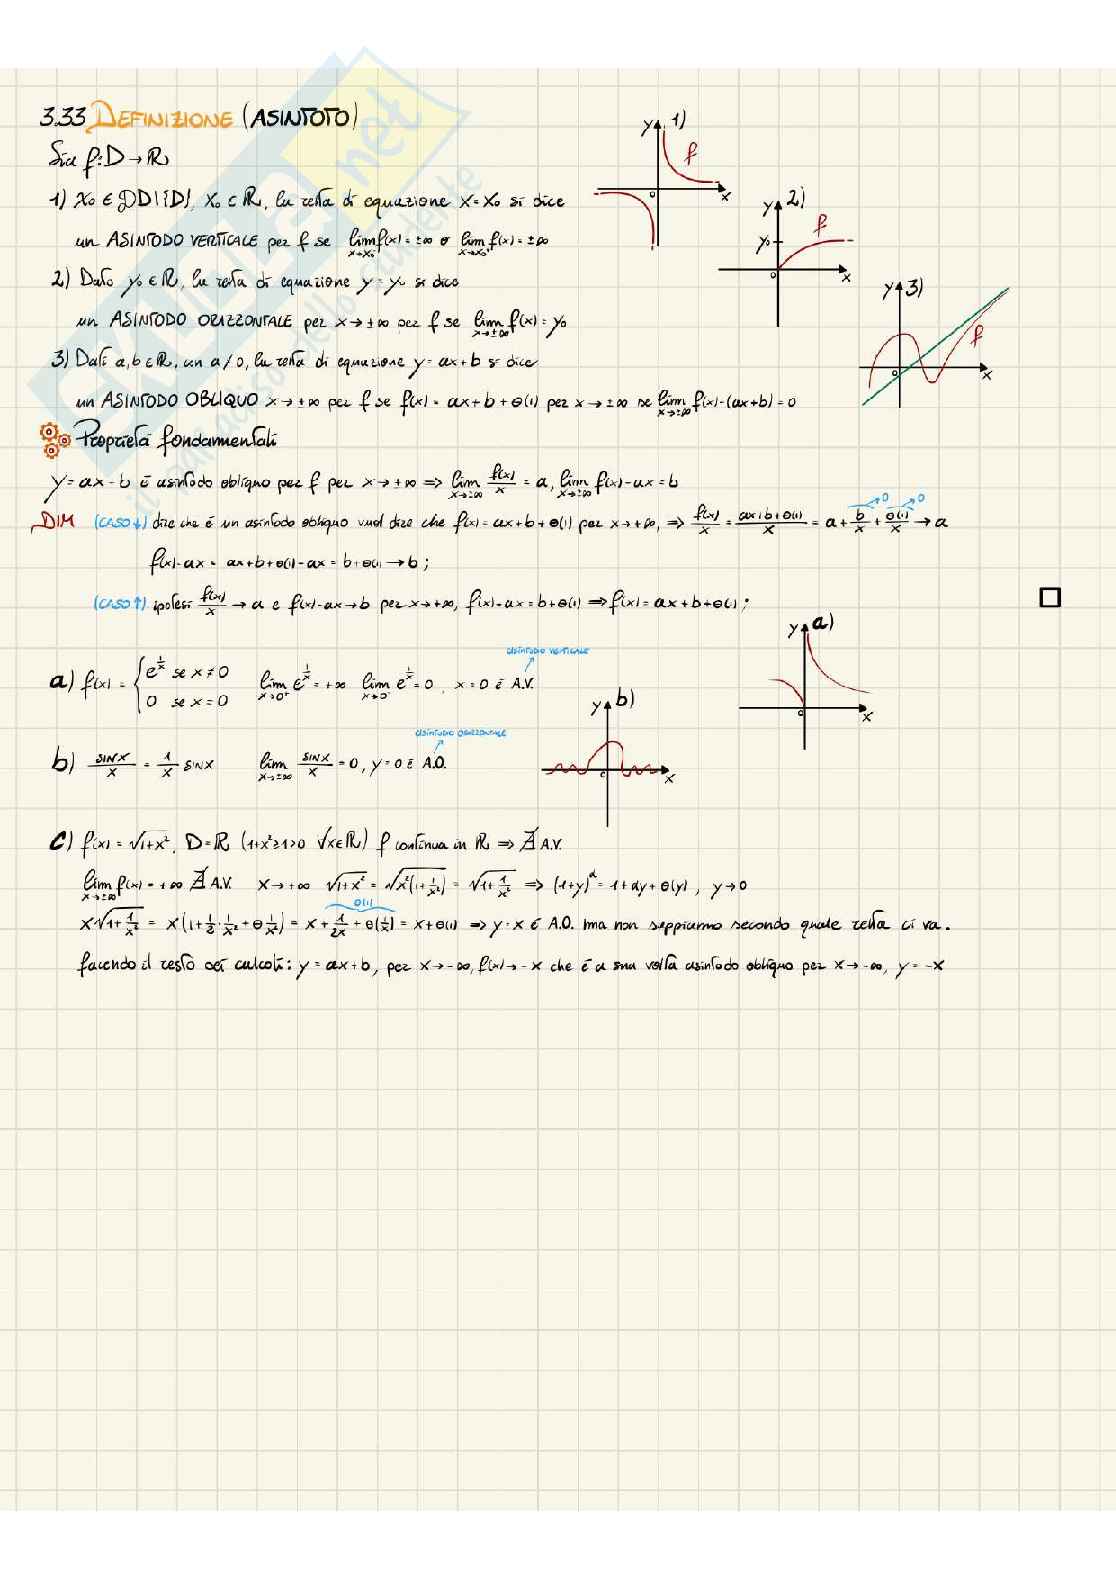 3.33 DEFINIZIONE (ASINTOTO)
Sia f: D → ℝ
1) x₀ ∈ 𝒟D\{D}, x₀ ⊂ ℝ, la retta di equazione x = x₀ si dice
un ASINTODO VERTICALE per f se lim x→x₀⁻ f(x) = ±∞ o lim x→x₀⁺ f(x) = ±∞
2) Dato y₀ ∈ ℝ, la retta di equazione y = y₀ si dice
un ASINTODO ORIZZONTALE per x → ±∞ per f se lim x→±∞ f(x) = y₀
3) Dati a, b ∈ ℝ, con a ≠ 0, la retta di equazione y = ax + b si dice
un ASINTODO OBLIQUO x → ±∞ per f se f(x) = ax + b + o(1) per x → ±∞ se lim x→±∞ f(x) - (ax+b) = 0
1) y x 0 f
2) y y₀ x 0 f
3) y x 0 f
Proprietà fondamentali
y = ax - b è asintodo obliquo per f per x → ±∞ ⇒ lim x→±∞ f(x)/x = a, lim x→±∞ f(x) - ax = b
DIM (CASO ↓) dire che è un asintodo obliquo vuol dire che f(x) = ax + b + o(1) per x → +∞, ⇒ f(x)/x = ax+b+o(1)/x = a + b/x + o(1)/x → a
→0 →0
f(x) - ax = ax + b + o(1) - ax = b + o(1) → b;
(CASO ↑) ipotesi f(x)/x → a e f(x) - ax → b per x → +∞, f(x) - ax = b + o(1) ⇒ f(x) = ax + b + o(1); □
asintodo verticale
a) f(x) = { e^(1/x) se x ≠ 0
0 se x = 0
lim x→0⁺ e^(1/x) = +∞ lim x→0⁻ e^(1/x) = 0, x = 0 è A.V.
a) y x 0
asintodo orizzontale
b) sinx/x = 1/x sinx lim x→±∞ sinx/x = 0, y = 0 è A.O.
b) y x 0
c) f(x) = √1+x², D = ℝ (1+x² ≥ 1 > 0 ∀x ∈ ℝ) f continua in ℝ ⇒ ∄ A.V.
lim x→±∞ f(x) = +∞ ∄ A.V. x → +∞ √1+x² = √x²(1+1/x²) = √1+1/x² ⇒ (1+y)^α = 1+αy+o(y), y → 0
o(1)
x√1+1/x² = x(1+1/2·1/x²+o 1/x²) = x + 1/2x + o(1/x) = x + o(1) ⇒ y = x è A.O. ma non sappiamo secondo quale retta ci va.
facendo il resto dei calcoli: y = ax + b, per x → -∞, f(x) → -x che è a sua volta asintodo obliquo per x → -∞, y = -x